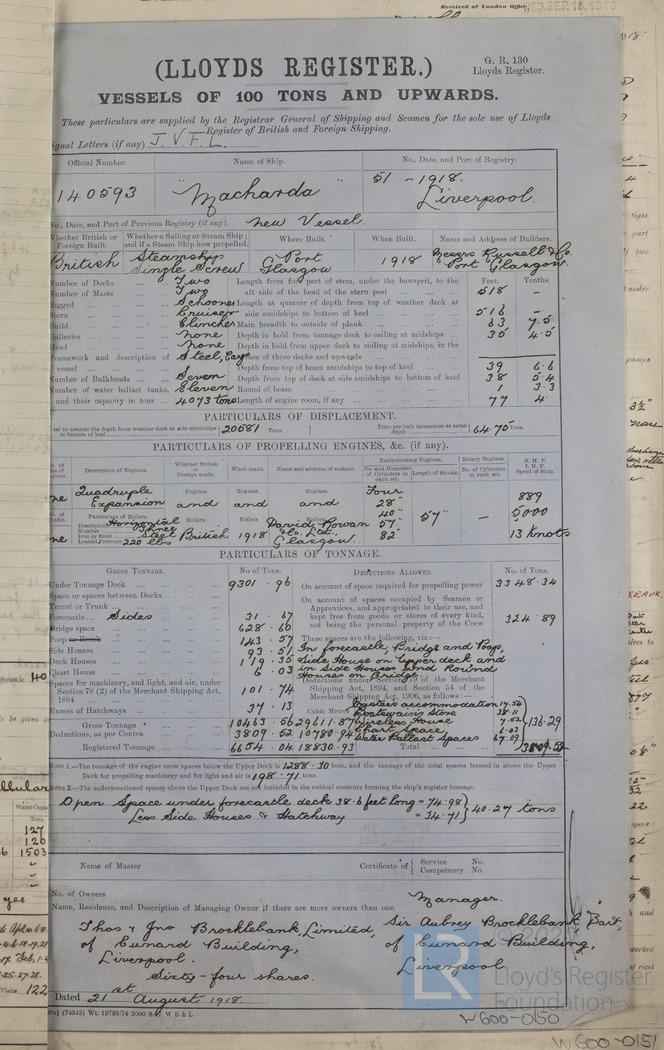 Received at London Office
WED SEP 18 1918
(LLOYDS REGISTER.)
G. R. 130
Lloyds Register.
VESSELS OF 100 TONS AND UPWARDS.
These particulars are supplied by the Registrar General of Shipping and Seamen for the sole use of Lloyds
Register of British and Foreign Shipping.
ignal Letters (if any) J. V. F. L.
Official Number. Name of Ship. No., Date, and Port of Registry.
140593 "Macharda" 51 - 1918.
Liverpool.
No., Date, and Port of Previous Registry (if any). New Vessel.
Whether British or Foreign Built. Whether a Sailing or Steam Ship; and if a Steam Ship how propelled. Where Built. When Built. Name and Address of Builders.
British Steamship Single Screw Port Glasgow 1918 Messrs Russell & Co. Port Glasgow.
Number of Decks Two Length from fore part of stem, under the bowsprit, to the Feet. Tenths.
Number of Masts Two aft side of the head of the stern post 518 -
Rigged Schooner Length at quarter of depth from top of weather deck at
Stern Cruiser side amidships to bottom of keel 516 -
Build Clincher Main breadth to outside of plank 63 7.5
Galleries None Depth in hold from tonnage deck to ceiling at midships 35 4.5
Head None Depth in hold from upper deck to ceiling at midships, in the
Framework and description of Steel, case of three decks and upwards
vessel Depth from top of beam amidships to top of keel 39 6.6
Number of Bulkheads Seven Depth from top of deck at side amidships to bottom of keel 38 5.4
Number of water ballast tanks, Eleven Round of beam 1 3.3
and their capacity in tons 4073 tons Length of engine room, if any 77 4
PARTICULARS OF DISPLACEMENT.
Total to quarter the depth from weather deck at side amidships to bottom of keel 20581 Tons. Ditto per inch immersion at same depth 64.75 Tons.
PARTICULARS OF PROPELLING ENGINES, &c. (if any).
Description of Engines. Whether British or Foreign made. When made. Name and address of makers. Reciprocating Engines. Rotary Engines. N. H. P.
No. and Diameter of Cylinders in each set. Length of Stroke. No. of Cylinders in each set. I. H. P. Speed of Ship.
Engines. Engines. Engines. Four
Quadruple Expansion and and and 28" 889
Particulars of Boilers. Boilers Boilers Boilers 40" 57" - 5000
Description Horizontal David Rowan 57"
Number Three
Iron or Steel Steel British 1918 & Co. Ltd. 82" 13 knots
Loaded Pressure 220 lbs Glasgow.
PARTICULARS OF TONNAGE.
GROSS TONNAGE. No. of Tons. DEDUCTIONS ALLOWED. No. of Tons.
Under Tonnage Deck 9301.96 On account of space required for propelling power 3348.34
Space or spaces between Decks
Turret or Trunk On account of spaces occupied by Seamen or Apprentices, and appropriated to their use, and
Forecastle Sides 31.67 kept free from goods or stores of every kind, 324.89
Bridge space 628.60 not being the personal property of the Crew
Poop or Break 143.57 These spaces are the following, viz.:—
Side Houses 93.51 In forecastle, Bridge and Poop,
Deck Houses 119.35 Side House on Upper deck and
Chart House 6.03 in Side Houses and Round Houses on Bridge.
Spaces for machinery, and light, and air, under Deductions under Section 79 of the Merchant
Section 78 (2) of the Merchant Shipping Act, 1894 101.74 Shipping Act, 1894, and Section 54 of the Merchant Shipping Act, 1906, as follows:—
Excess of Hatchways 37.13 Cubic Metres. Masters accommodation 17.54
Boatswains Store 38.11
Gross Tonnage 10463.56 29611.87 Wireless House 7.52 136.29
Deductions, as per Contra 3809.52 10780.94 Chart Space 6.03
Water Ballast Spaces 67.09
Registered Tonnage 6654.04 18830.93 Total 3809.52
NOTE 1.—The tonnage of the engine room spaces below the Upper Deck is 1288.30 tons, and the tonnage of the total spaces framed in above the Upper
Deck for propelling machinery and for light and air is 198.71 tons.
NOTE 2.—The undermentioned spaces above the Upper Deck are not included in the cubical contents forming the ship's register tonnage.
Open Space under forecastle deck 38.6 feet long = 74.98
Less Side Houses & Hatchway = 34.71 40.27 tons
Name of Master Certificate of Service No.
Competency No.
No. of Owners
Name, Residence, and Description of Managing Owner if there are more owners than one. Manager.
Thos & Jno Brocklebank, Limited, Sir Aubrey Brocklebank Bart,
of Cunard Building, of Cunard Building,
Liverpool. Liverpool
Sixty-four shares.
Dated 21st August 1918.
(74343) Wt. 19793/74 2000 8-17 W B & L
LR
© 202
Lloyd's Register
Foundation
W600-0150
W600-0151